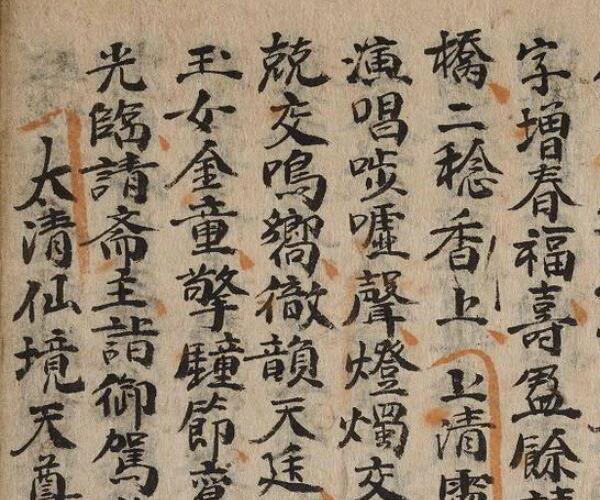 字增春福壽盈餘
橋二稔香上 上清
演唱噓聲燈燭交
兢交鳴嚮徹韻天廷
玉女金童擎節齊
光臨請斋主詣御駕
太清仙境天尊